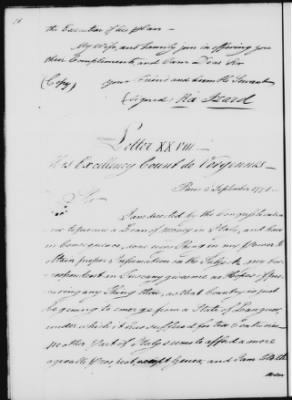 the Execution of the plan —
My Wife, and family join in offering you
their Compliments, and I am Dear Sir
(Copy) your Friend and Humble Servant
Signed, Ra Izard
Letter XXVIII
His Excellency Count de Vergennes
Paris 2 September 1778
Sir
I am directed by the Congress
to procure a Loan of Money in Italy, and have
in Consequence, done every Thing in my Power to
obtain proper Information on the Subject, my
Correspondent in Tuscany gives me no Hopes of
any Thing there, as that Country is just
beginning to emerge from a State of Languor,
under which it has suffered for Two Centuries
part of Italy seems to afford a more
Prospect, except Genoa, and I am